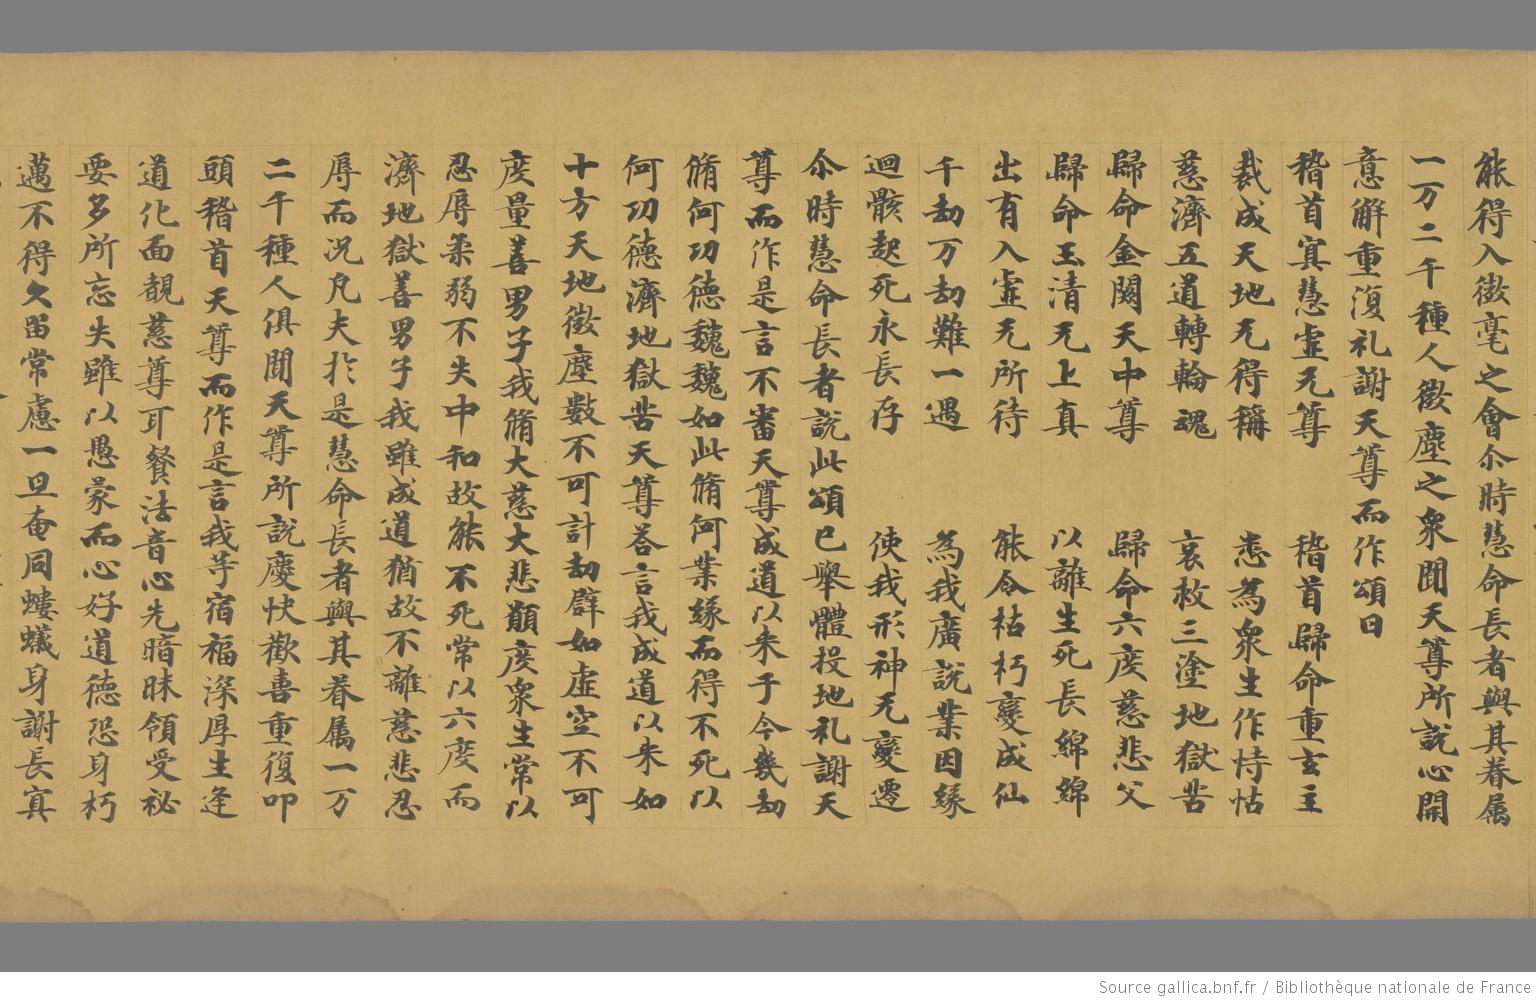 能得入微毫之會尒時慧命長者與其眷属
一万二千種人微塵之眾聞天尊所說心開
意解重復礼謝天尊而作頌曰
稽首寘慧虛无尊 稽首歸命重玄主
裁成天地无得稱 悉為眾生作恃怙
慈濟五道轉輪魂 哀救三塗地獄苦
歸命金闕天中尊 歸命六度慈悲父
歸命玉清无上真 以離生死長綿綿
出有入虛无所待 能令枯朽變成仙
千劫万劫難一遇 為我廣說業因緣
迴骸起死永長存 使我形神无變遷
尒時慧命長者說此頌已舉體投地礼謝天
尊而作是言不審天尊成道以来于今幾劫
脩何功德魏魏如此脩何業緣而得不死以
何功德濟地獄苦天尊荅言我成道以来如
十方天地微塵數不可計劫辟如虛空不可
度量善男子我脩大慈大悲願度眾生常以
忍辱柔弱不失中和故能不死常以六度而
濟地獄善男子我雖成道猶故不離慈悲忍
辱而况凡夫於是慧命長者與其眷属一万
二千種人俱聞天尊所說慶快歡喜重復叩
頭稽首天尊而作是言我等宿福深厚生逢
道化面覩慈尊耳餐法音心先暗昧領受祕
要多所忘失雖以愚蒙而心好道德恐身朽
邁不得久留常慮一旦奄同螻蟻身謝長寘
Source gallica.bnf.fr / Bibliothèque nationale de France